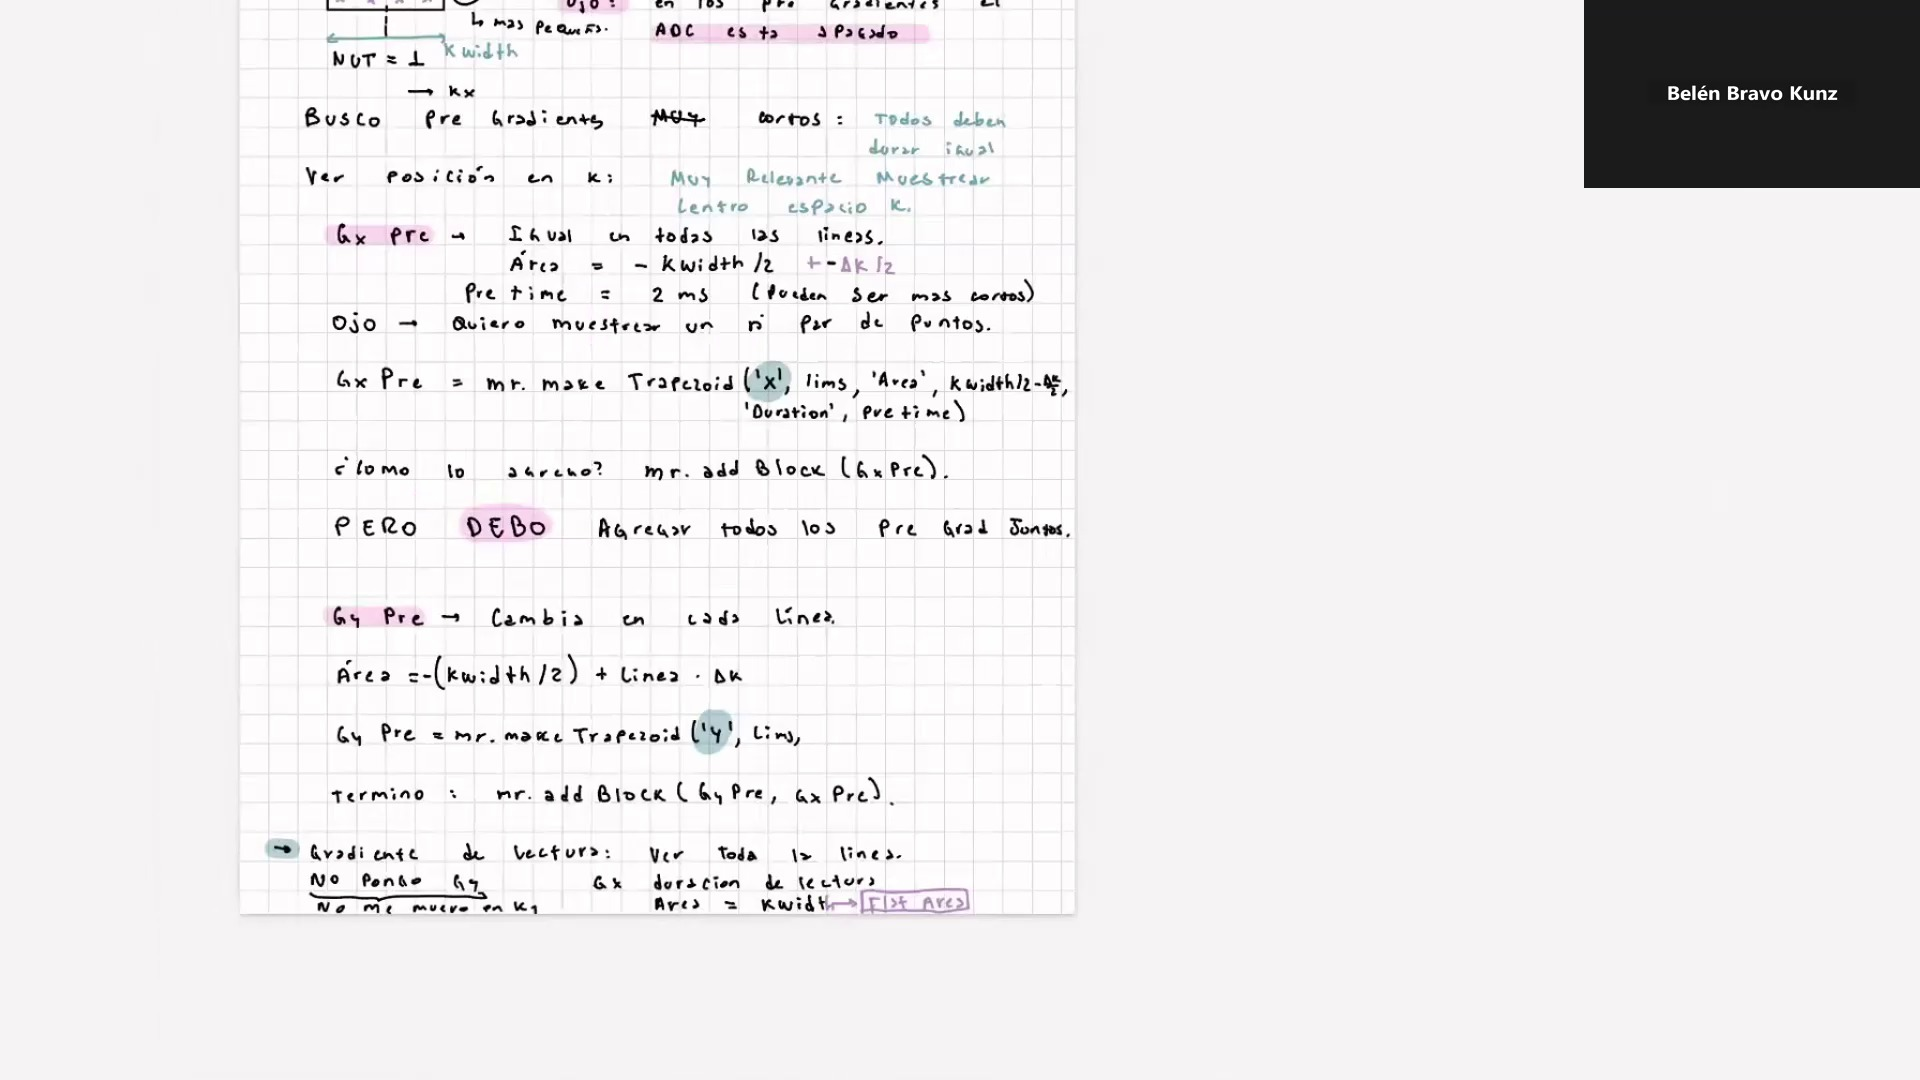 Ojo: en los pre Gradientes el
↳ mas pequeño. ADC esta apagado
k width
NUT = 1
→ kx
Busco Pre Gradientes Muy cortos : Todos deben
durar igual
Ver posición en k: Muy Relevante Muestrear
Centro espacio k.
Gx Pre → Igual en todas las lineas.
Área = - kwidth/2 + - Δk/2
Pre time = 2 ms (Pueden ser mas cortos)
Ojo → Quiero muestrear un n° par de puntos.
Gx Pre = mr. make Trapezoid ('x', lims, 'Area', kwidth/2 - Δk/2,
'Duration', pre time)
¿Como lo agrego? mr. add Block (Gx Pre).
PERO DEBO Agregar todos los Pre Grad Juntos.
Gy Pre → Cambia en cada Línea.
Área = -(kwidth/2) + Linea · Δk
Gy Pre = mr. make Trapezoid ('y', Lims,
Termino : mr. add Block (Gy Pre, Gx Pre).
→ Gradiente de Lectura: Ver toda la linea.
No Pongo Gy Gx duracion de lectura
No me muevo en ky Area = kwidth → Flat Area
Belén Bravo Kunz